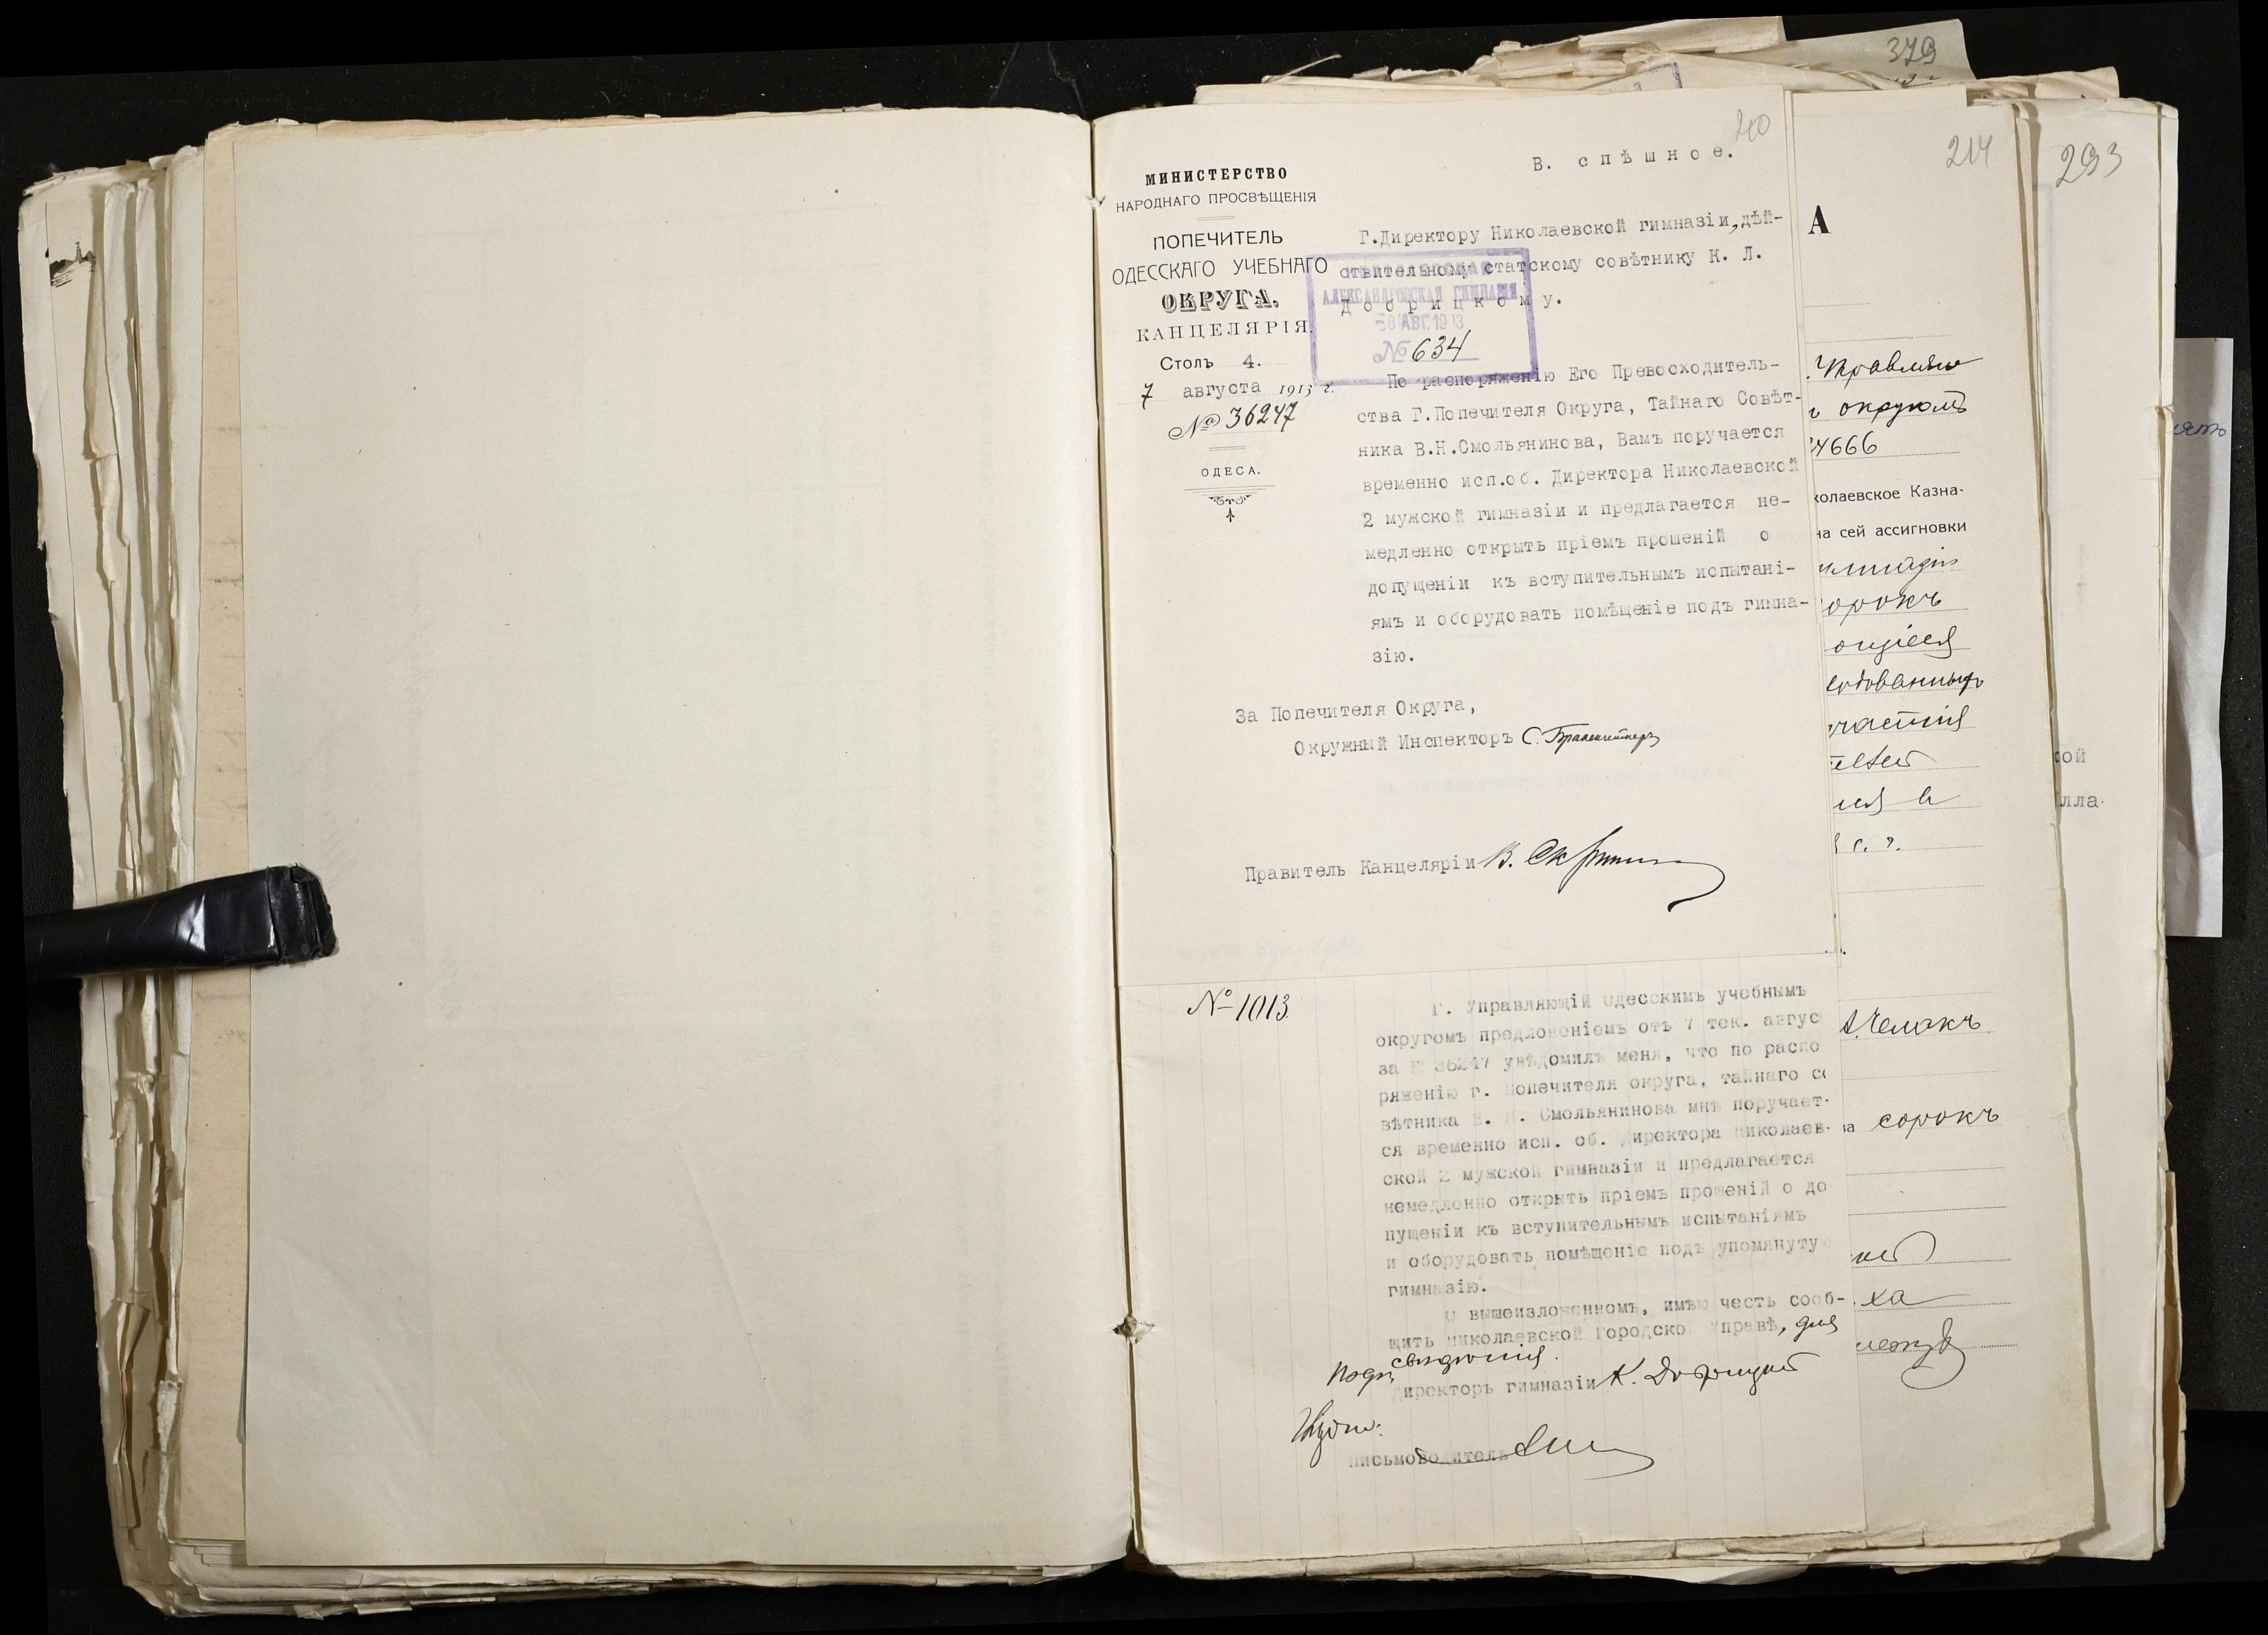 379
210
214
293
В. спѣшное.
МИНИСТЕРСТВО
НАРОДНАГО ПРОСВѢЩЕНІЯ
ПОПЕЧИТЕЛЬ
ОДЕССКАГО УЧЕБНАГО
ОКРУГА,
КАНЦЕЛЯРІЯ.
Столъ 4.
7 августа 1913 г.
№ 36247
ОДЕСА.
Г.Директору Николаевской гимназіи,дѣй-
ствительному статскому совѣтнику К. Л.
Добрицкому.
АЛЕКСАНДРОВСКАЯ ГИМНАЗІЯ
8 АВГ. 1913
№ 634
По распоряженію Его Превосходитель-
ства Г.Попечителя Округа, Тайнаго Совѣт-
ника В.Н.Смольянинова, Вамъ поручается
временно исп.об. Директора Николаевской
2 мужской гимназіи и предлагается не-
медленно открыть пріемъ прошеній о
допущеніи къ вступительнымъ испытані-
ямъ и оборудовать помѣщеніе подъ гимна-
зію.
За Попечителя Округа,
Окружный Инспекторъ С.
Правитель Канцеляріи В.
№ 1013
Г. Управляющій Одесскимъ учебнымъ
округомъ предложеніемъ отъ 7 тек. авгус
за № 36247 увѣдомилъ меня, что по распо
ряженію г. Попечителя округа, тайнаго со
вѣтника В. Н. Смольянинова мнѣ поручает-
ся временно исп. об. Директора Николаев-
ской 2 мужской гимназіи и предлагается
немедленно открыть пріемъ прошеній о до
пущеніи къ вступительнымъ испытаніямъ
и оборудовать помѣщеніе подъ упомянутую
гимназію.
О вышеизложенномъ, имѣю честь сооб-
щить Николаевской Городской Управѣ, для
свѣдѣнія.
Подп. Директоръ гимназіи К. Добрицкій
Письмоводитель
А
округомъ
4666
колаевское Казна-
на сей ассигновки
орокъ
с. г.
на сорокъ
ха
ой
лла-